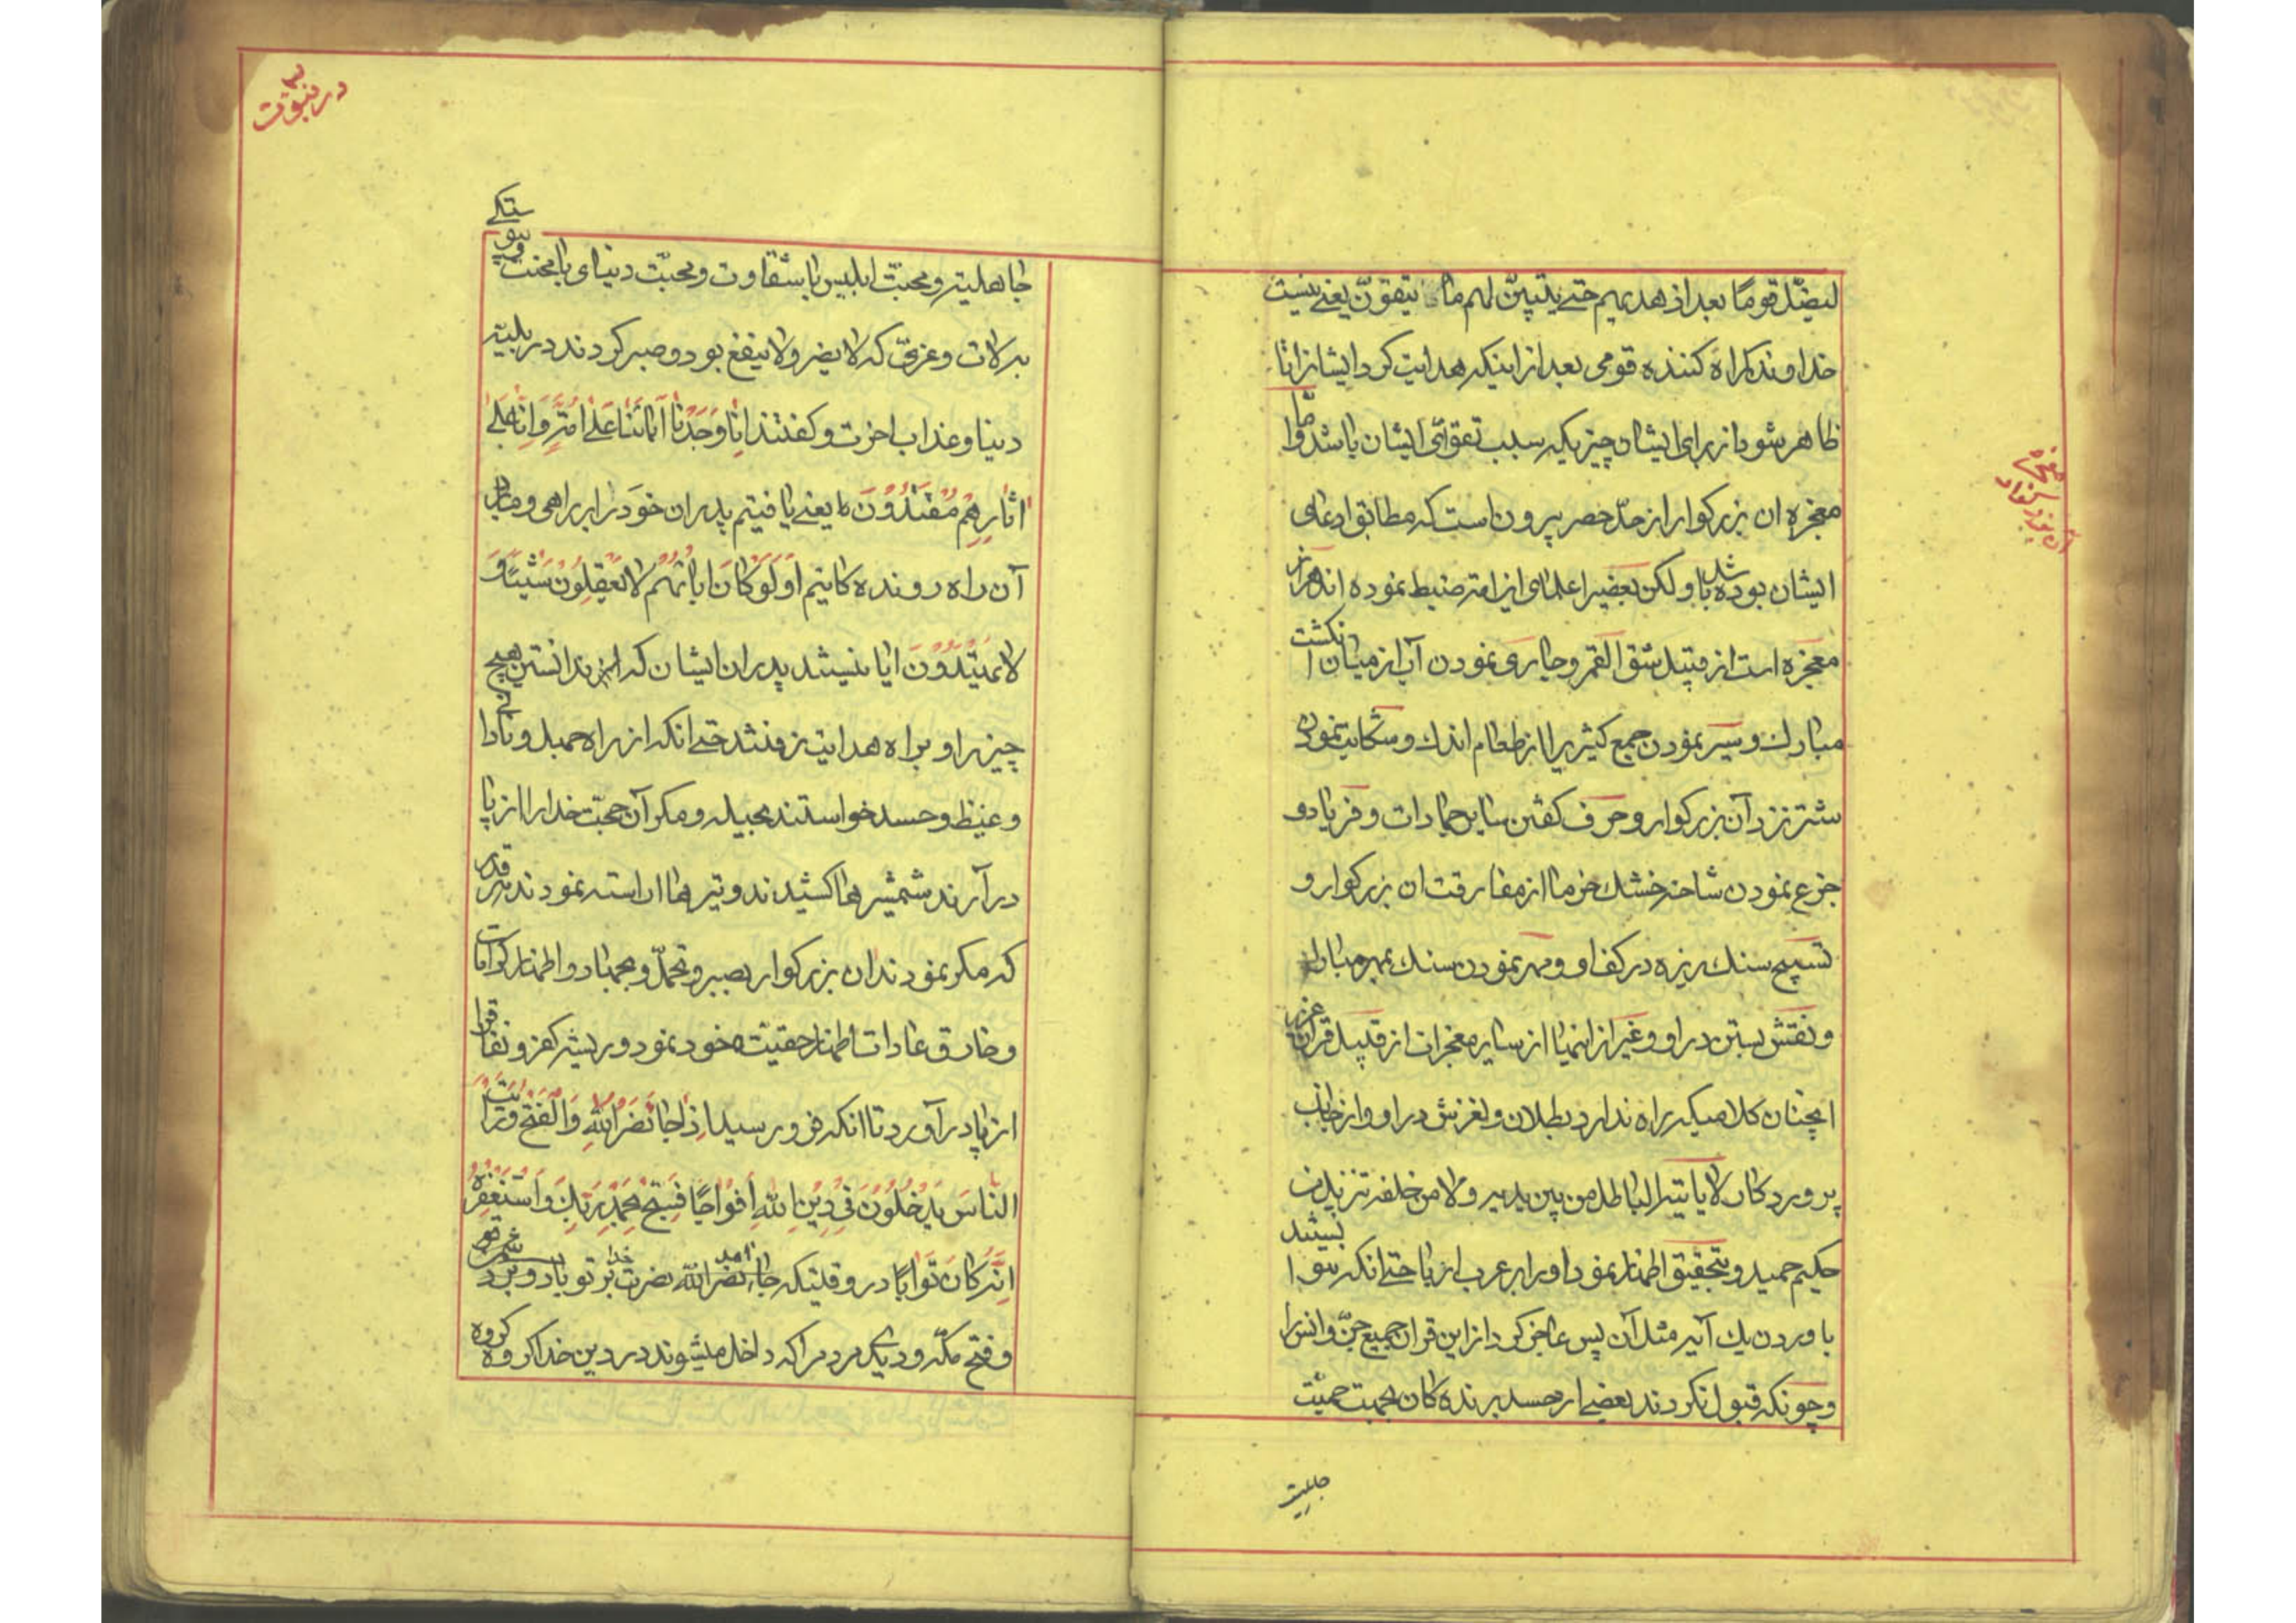 لیضلّ قومًا بعد اذ هدیهم حتی یتبیّن لهم ما یتقون یعنی نیست
خداوند کمراه کننده قومی بعد از اینکه هدایت کرد ایشانرا تا
ظاهر شود از برای ایشان چیزیکه سبب تقوای ایشان باشد و امّا
معجزه ان بزرکوار از حدّ حصر بیرون است که مطابق ادعای
ایشان بوده باشد ولکن بعضیرا علمای این امّة ضبط نموده اند هزار
معجزه است از قبیل شق القمر و جاری نمودن آب از میان انکشت
مبارك و سیر نمودن جمع کثیریرا از طعام اندك و شکایت نمودن
شتر نزد آن بزرکوار و حرف کفتن سایر جمادات و فریاد و
جزع نمودن شاخه خشك خرما از مفارقت ان بزرکوار و
تسبیح سنك ریزه در کف او و مهر نمودن سنك بمهر مبارك
و نقش بستن در او و غیر از اینها از سایر معجزات از قبیل قران عزیز
انچنان کلامیکه راه ندارد بطلان و لغزش در او و از جانب
پروردکار لا یاتیه الباطل من بین یدیه و لا من خلفه تنزیل من
حکیم حمید و بتحقیق اظهار نمود او را بر عرب از با حتی انکه نتوانستند
باوردن یك آیه مثل آن پس عاجز کرد از این قران جمیع جنّ و انس را
و چونکه قبول نکردند بعضی از حسد برنده کان بجهت حمیّت
جاهلیت
معجزه
آن بزرکوار
در نبوّت
جاهلیته و محبّت ابلیس با شقاوت و محبّت دنیای با محنت
به لات و عزیّ که لا یضر و لا ینفع بود و صبر کردند در بلیّه
دنیا و عذاب اخرت و کفتند اِنّا وَجَدْنا آبائَنا عَلی اُمَّةٍ وَ اِنّا عَلی
اثارِهِم مُقْتَدُونَ یعنی یافتیم پدران خود را بر راهی و ما بر
آن راه رونده کانیم اَوَ لَوْ کانَ ابائُهُم لا یَعْقِلُونَ شَیْئًا وَ
لا یَهْتَدُونَ ایا نیستند پدران ایشان که ندانستن هیچ
چیز را و براه هدایت نرفتند حتی انکه از راه جهل و نادانی
و غیظ و حسد خواستند بحیله و مکر آن حجت خدا را از پا
در آرند شمشیرها کشیدند و تیرها اراسته نمودند هر قدر
که مکر نمودند ان بزرکوار بصبر و تحمّل و بجهاد و اظهار کرامات
و خارق عادات اظهار حقیّت خود نمود و ریشه کفر و نفاق را
از پا در آورد تا انکه فرو رسید اِذا جاءَ نَصْرُ اللّهِ وَ الْفَتْحُ وَ رَاَیْتَ
النّاسَ یَدْخُلُونَ فی دینِ اللّهِ اَفْواجًا فَسَبِّحْ بِحَمْدِ رَبِّكَ وَ اسْتَغْفِرْهُ
اِنَّهُ کانَ تَوّابًا در وقتیکه جاءَ نصر الله امد نصرت خدا بر تو یاد و بر
و فتح مکّه و دیدی مردمرا که داخل میشوند در دین خدا کروه کروه